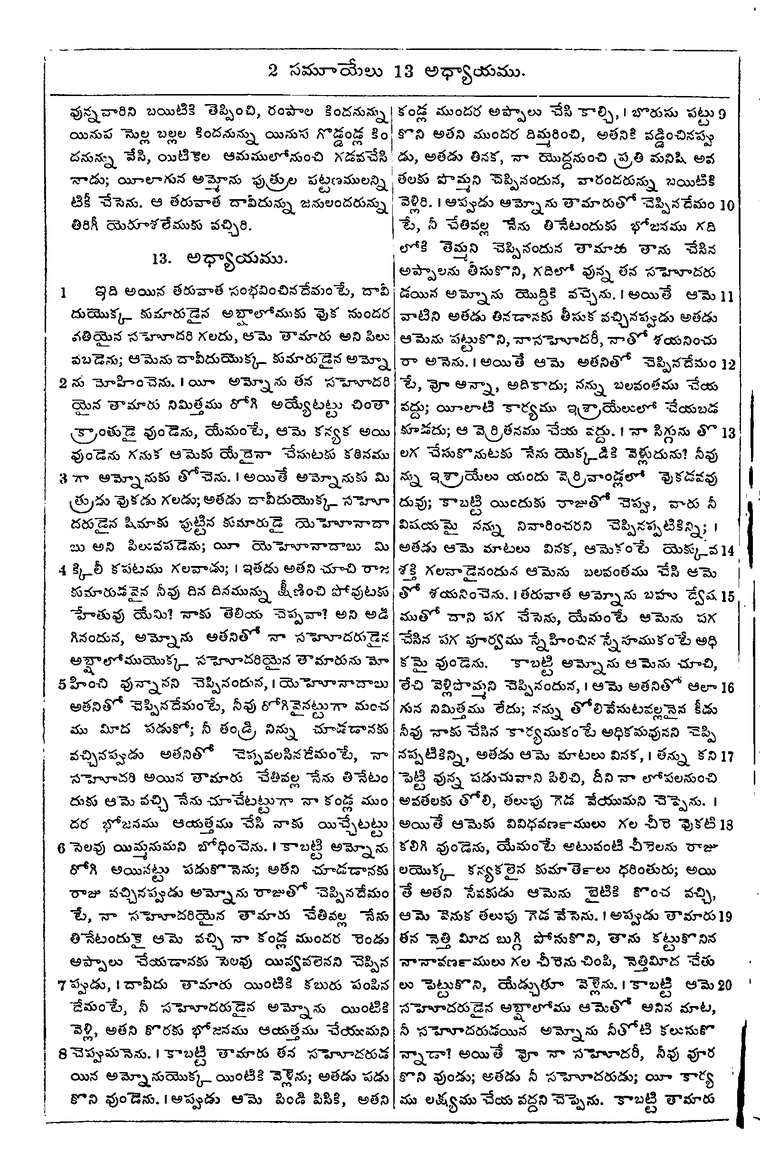 2 సమూయేలు 13 అధ్యాయము.
వున్నవారిని బయిటికి తెప్పించి, రంపాల కిందనున్ను
యినుప నుల్ల బల్లల కిందనున్ను యినుప గొడ్డండ్ల కిం
దనున్ను వేసి, యిటికెల ఆమములోనుంచి గడవచేసి
నాడు; యీలాగున అమ్మోను పుత్రుల పట్టణములన్ని
టికీ చేసెను. ఆ తరువాత దావీదున్ను జనులందరున్ను
తిరిగీ యెరూశలేముకు వచ్చిరి.
13. అధ్యాయము.
1 ఇది అయిన తరువాత సంభవించినదేమంటే, దావీ
దుయొక్క కుమారుడైన అబ్షాలోముకు వొక సుందర
వతియైన సహోదరి గలదు, ఆమె తామారు అని పిలు
వబడెను; ఆమెను దావీదుయొక్క కుమారుడైన అమ్నో
2 ను మోహించెను. । యీ అమ్నోను తన సహోదరి
యైన తామారు నిమిత్తము రోగి అయ్యేటట్టు చింతా
క్రాంతుడై వుండెను, యేమంటే, ఆమె కన్యక అయి
వుండెను గనుక ఆమెకు యేదైనా చేసుటకు కఠినము
3 గా అమ్నోనుకు తోచెను. । అయితే అమ్నోనుకు మి
త్రుడు వొకడు గలడు; అతడు దావీదుయొక్క సహో
దరుడైన షిమాకు పుట్టిన కుమారుడై యెహోనాదా
బు అని పిలువబడెను; యీ యెహోనాదాబు మి
4 క్కిలీ కపటము గలవాడు; । ఇతడు అతని చూచి రాజ
కుమారుడవైన నీవు దిన దినమున్ను క్షీణించి పోవుటకు
హేతువు యేమి? నాకు తెలియ చెప్పవా? అని అడి
గినందున, అమ్నోను అతనితో నా సహోదరుడైన
అబ్షాలోముయొక్క సహోదరియైన తామారును మో
5 హించి వున్నానని చెప్పినందున, । యెహోనాదాబు
అతనితో చెప్పినదేమంటే, నీవు రోగివైనట్టుగా మంచ
ము మీద పడుకో; నీ తండ్రి నిన్ను చూడడానకు
వచ్చినప్పుడు అతనితో చెప్పవలసినదేమంటే, నా
సహోదరి అయిన తామారు చేతివల్ల నేను తినేటం
దుకు ఆమె వచ్చి నేను చూచేటట్టుగా నా కండ్ల ముం
దర భోజనము ఆయత్తము చేసి నాకు యిచ్చేటట్టు
6 సెలవు యిమ్మనుమని బోధించెను. । కాబట్టి అమ్నోను
రోగి అయినట్టు పడుకొనెను; అతని చూడడానకు
రాజు వచ్చినప్పుడు అమ్నోను రాజుతో చెప్పినదేమం
టే, నా సహోదరియైన తామారు చేతివల్ల నేను
తినేటందుకై ఆమె వచ్చి నా కండ్ల ముందర రెండు
అప్పాలు చేయడానకు సెలవు యివ్వవలెనని చెప్పిన
7 ప్పుడు, । దావీదు తామారు యింటికి కబురు పంపిన
దేమంటే, నీ సహోదరుడైన అమ్నోను యింటికి
వెళ్లి, అతని కొరకు భోజనము ఆయత్తము చేయుమని
8 చెప్పుమనెను. । కాబట్టి తామారు తన సహోదరుడ
యిన అమ్నోనుయొక్క యింటికి వెళ్లెను; అతడు పడు
కొని వుండెను. । అప్పుడు ఆమె పిండి పిసికి, అతని
కండ్ల ముందర అప్పాలు చేసి కాల్చి, । బొరుసు పట్టు 9
కొని అతని ముందర దిమ్మరించి, అతనికి వడ్డించినప్పు
డు, అతడు తినక, నా యొద్దనుంచి ప్రతి మనిషి అవ
తలకు పొమ్మని చెప్పినందున, వారందరున్ను బయిటికి
వెళ్లిరి. । అప్పుడు అమ్నోను తామారుతో చెప్పినదేమం 10
టే, నీ చేతివల్ల నేను తినేటందుకు భోజనము గది
లోకి తెమ్మని చెప్పినందున తామారు తాను చేసిన
అప్పాలను తీసుకొని, గదిలో వున్న తన సహోదరు
డయిన అమ్నోను యొద్దికి వచ్చెను. । అయితే ఆమె 11
వాటిని అతడు తినడానకు తీసుక వచ్చినప్పుడు అతడు
ఆమెను పట్టుకొని, నాసహోదరీ, నాతో శయనించు
రా అనెను. । అయితే ఆమె అతనితో చెప్పినదేమం 12
టే, వో అన్నా, అదికాదు; నన్ను బలవంతము చేయ
వద్దు; యీలాటి కార్యము ఇశ్రాయేలులో చేయబడ
కూడదు; ఆ వెర్రితనము చేయ వద్దు. । నా సిగ్గును తొ 13
లగ చేసుకొనుటకు నేను యెక్కడికి వెళ్లుదును? నీవు
న్ను ఇశ్రాయేలు యందు వెర్రివాండ్లలో వొకడవవు
దువు; కాబట్టి యిందుకు రాజుతో చెప్పు, వారు నీ
విషయమై నన్ను నివారించరని చెప్పినప్పటికిన్ని; ।
అతడు ఆమె మాటలు వినక, ఆమెకంటే యెక్కువ 14
శక్తి గలవాడైనందున ఆమెను బలవంతము చేసి ఆమె
తో శయనించెను. । తరువాత అమ్నోను బహు ద్వేష 15
ముతో దాని పగ చేసెను, యేమంటే ఆమెను పగ
చేసిన పగ పూర్వము స్నేహించిన స్నేహముకంటే అధి
కమై వుండెను. కాబట్టి అమ్నోను ఆమెను చూచి,
లేచి వెళ్లిపొమ్మని చెప్పినందున, । ఆమె అతనితో ఆలా 16
గున నిమిత్తము లేదు; నన్ను తోలివేసుటవల్లనైన కీడు
నీవు నాకు చేసిన కార్యముకంటే అధికమవునని చెప్పి
నప్పటికిన్ని, అతడు ఆమె మాటలు వినక, । తన్ను కని 17
పెట్టి వున్న పడుచువాని పిలిచి, దీని నా లోపలనుంచి
అవతలకు తోలి, తలుపు గెడ వేయుమని చెప్పెను. ।
అయితే ఆమెకు వివిధవర్ణములు గల చీరె వొకటి 18
కలిగి వుండెను, యేమంటే అటువంటి చీరెలను రాజు
లయొక్క కన్యకలైన కుమార్తెలు ధరింతురు; అయి
తే అతని సేవకుడు ఆమెను బైటికి కొంచ వచ్చి,
ఆమె వెనుక తలుపు గెడ వేసెను. । అప్పుడు తామారు 19
తన నెత్తి మీద బుగ్గి పోసుకొని, తాను కట్టుకొనిన
నానావర్ణములు గల చీరెను చింపి, నెత్తిమీద చేతు
లు పెట్టుకొని, యేడ్చుతూ వెళ్లెను. । కాబట్టి ఆమె 20
సహోదరుడైన అబ్షాలోము ఆమెతో అనిన మాట,
నీ సహోదరుడయిన అమ్నోను నీతోటి కలుసుకొ
న్నాడా? అయితే వో నా సహోదరీ, నీవు వూర
కొని వుండు; అతడు నీ సహోదరుడు; యీ కార్య
ము లక్ష్యము చేయ వద్దని చెప్పెను. కాబట్టి తామారు